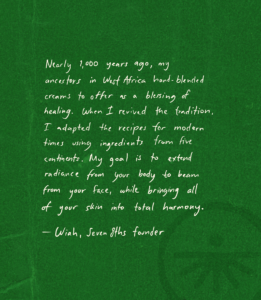 Nearly 1,000 years ago, my
ancestors in West Africa hand-blended
creams to offer as a blessing of
healing. When I revived the tradition,
I adapted the recipes for modern
times using ingredients from five
continents. My goal is to extend
radiance from your body to beam
from your face, while bringing all
of your skin into total harmony.
— Wiah, Seven 8ths founder